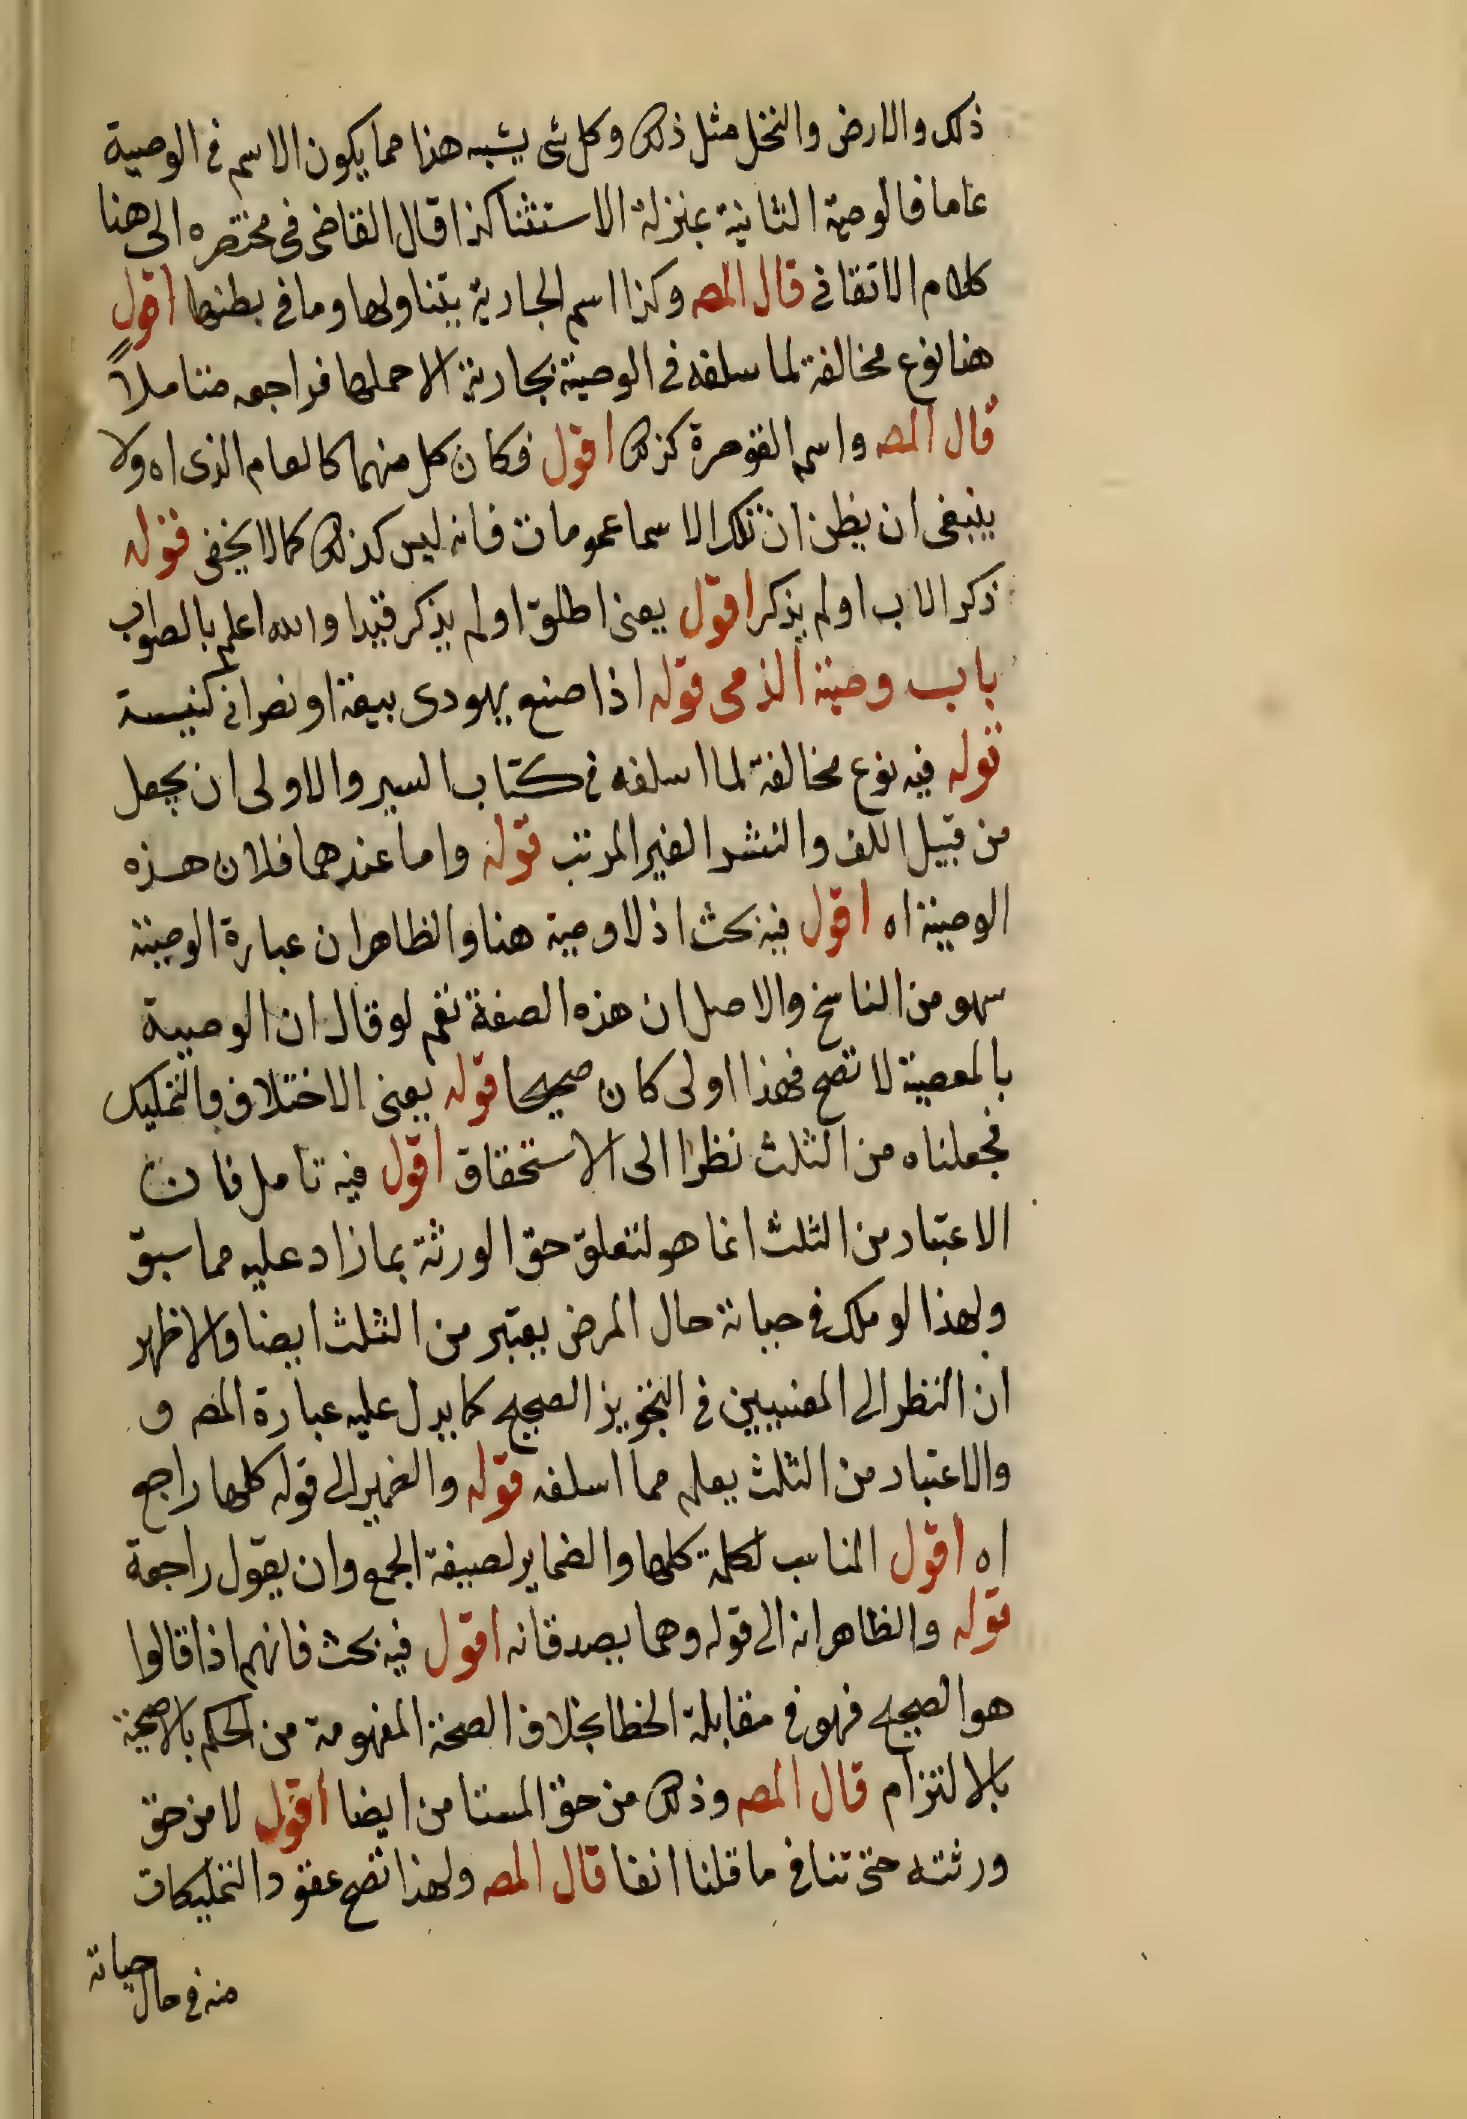 ذلك والارض والنخل مثل ذلك وكل شئ يشبه هذا مما يكون الاسم فى الوصية
عاما فالوصية الثانية بمنزلة الاستثنا كذا قال القاضى فى مختصره الى هنا
كلام الاتقانى قال المصـ وكذا اسم الجارية يتناولها وما فى بطنها اقول
هنا نوع مخالفة لما سلفه فى الوصية بجارية الا حملها فراجعه متاملاً
قال المصـ واسم القوصرة كذلك اقول فكان كل منهما كالعام الذى اه ولا
ينبغى ان يظن ان تلك الاسما عمومات فانه ليس كذلك كما لا يخفى قوله
ذكر الاب او لم يذكر اقول يعنى اطلق او لم يذكر قيدا والله اعلم بالصواب
باب وصية الذمى قوله اذا صنع يهودى بيعة او نصرانى كنيسة
قوله فيه نوع مخالفة لما اسلفه فى كتاب السير والاولى ان يجعل
من قبيل اللف والنشر الغير المرتب قوله واما عندهما فلان هذه
الوصية اه اقول فيه بحث اذ لا وصية هنا والظاهر ان عبارة الوصية
سهو من الناسخ والاصل ان هذه الصنعة نعم لو قال ان الوصية
بالمعصية لا تصح فهذا اولى كان صحيحا قوله يعنى الاختلاف فالتمليك
فجعلناه من الثلث نظرا الى الاستحقاق اقول فيه تامل فان
الاعتبار من الثلث انما هو لتعلق حق الورثة بما زاد عليه مما سبق
ولهذا لو ملك فى حياته حال المرض يعتبر من الثلث ايضا والاظهر
ان النظر الى المعنيين فى التخويز الصحيح كما يدل عليه عبارة المصـ و
والاعتبار من الثلث يعلم مما اسلفه قوله والضمير الى قوله كلها راجع
اه اقول المناسب لكلمة كلها والضماير لصيغة الجمع وان يقول راجعة
قوله والظاهر انه الى قوله وهما يصدقانه اقول فيه بحث فانهم اذا قالوا
هو الصحيح فهو فى مقابلة الخطا بخلاف الصحة المفهومة من الحكم بالاصحية
بالالتزام قال المصـ وذلك من حق المستامن ايضا اقول لا من حق
ورثته حتى تنافى ما قلنا انفا قال المصـ ولهذا تصح عقود التمليكات
منه فى حال حياته